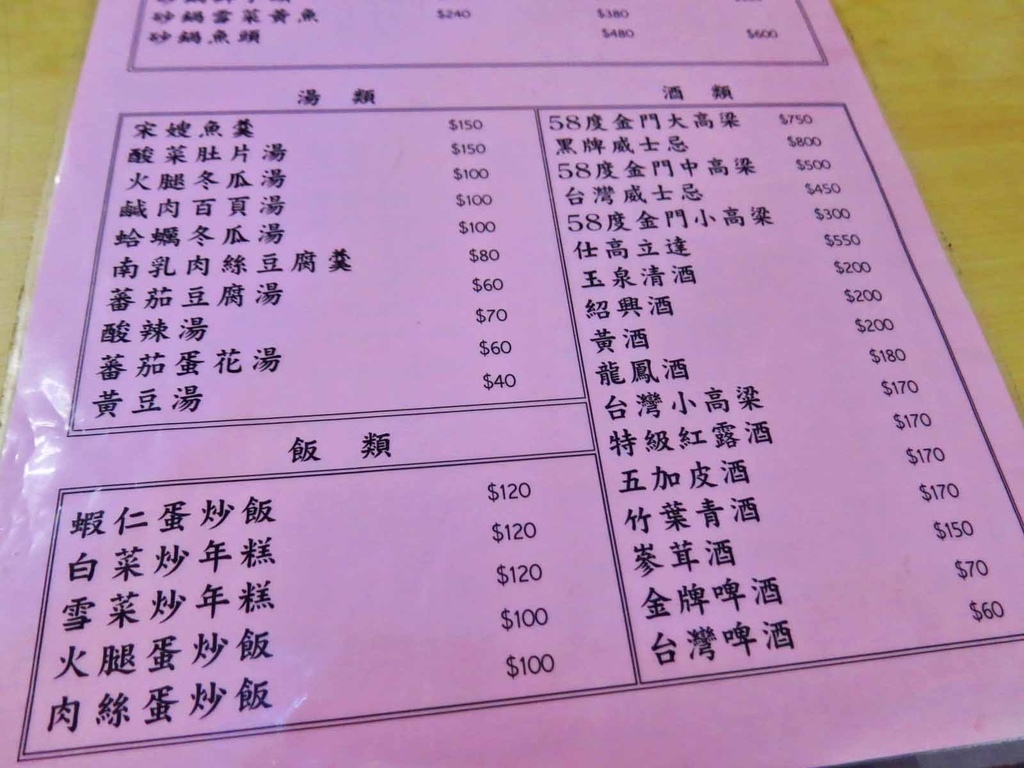 砂鍋雪菜黃魚 $240 $380
砂鍋魚頭 $480 $600
湯類
宋嫂魚羹 $150
酸菜肚片湯 $150
火腿冬瓜湯 $100
鹹肉百頁湯 $100
蛤蠣冬瓜湯 $100
南乳肉絲豆腐羹 $80
蕃茄豆腐湯 $60
酸辣湯 $70
蕃茄蛋花湯 $60
黃豆湯 $40
飯類
蝦仁蛋炒飯 $120
白菜炒年糕 $120
雪菜炒年糕 $120
火腿蛋炒飯 $100
肉絲蛋炒飯 $100
酒類
58度金門大高梁 $750
黑牌威士忌 $800
58度金門中高梁 $500
台灣威士忌 $450
58度金門小高梁 $300
仕高立達 $550
玉泉清酒 $200
紹興酒 $200
黃酒 $200
龍鳳酒 $180
台灣小高梁 $170
特級紅露酒 $170
五加皮酒 $170
竹葉青酒 $170
蔘茸酒 $150
金牌啤酒 $70
台灣啤酒 $60